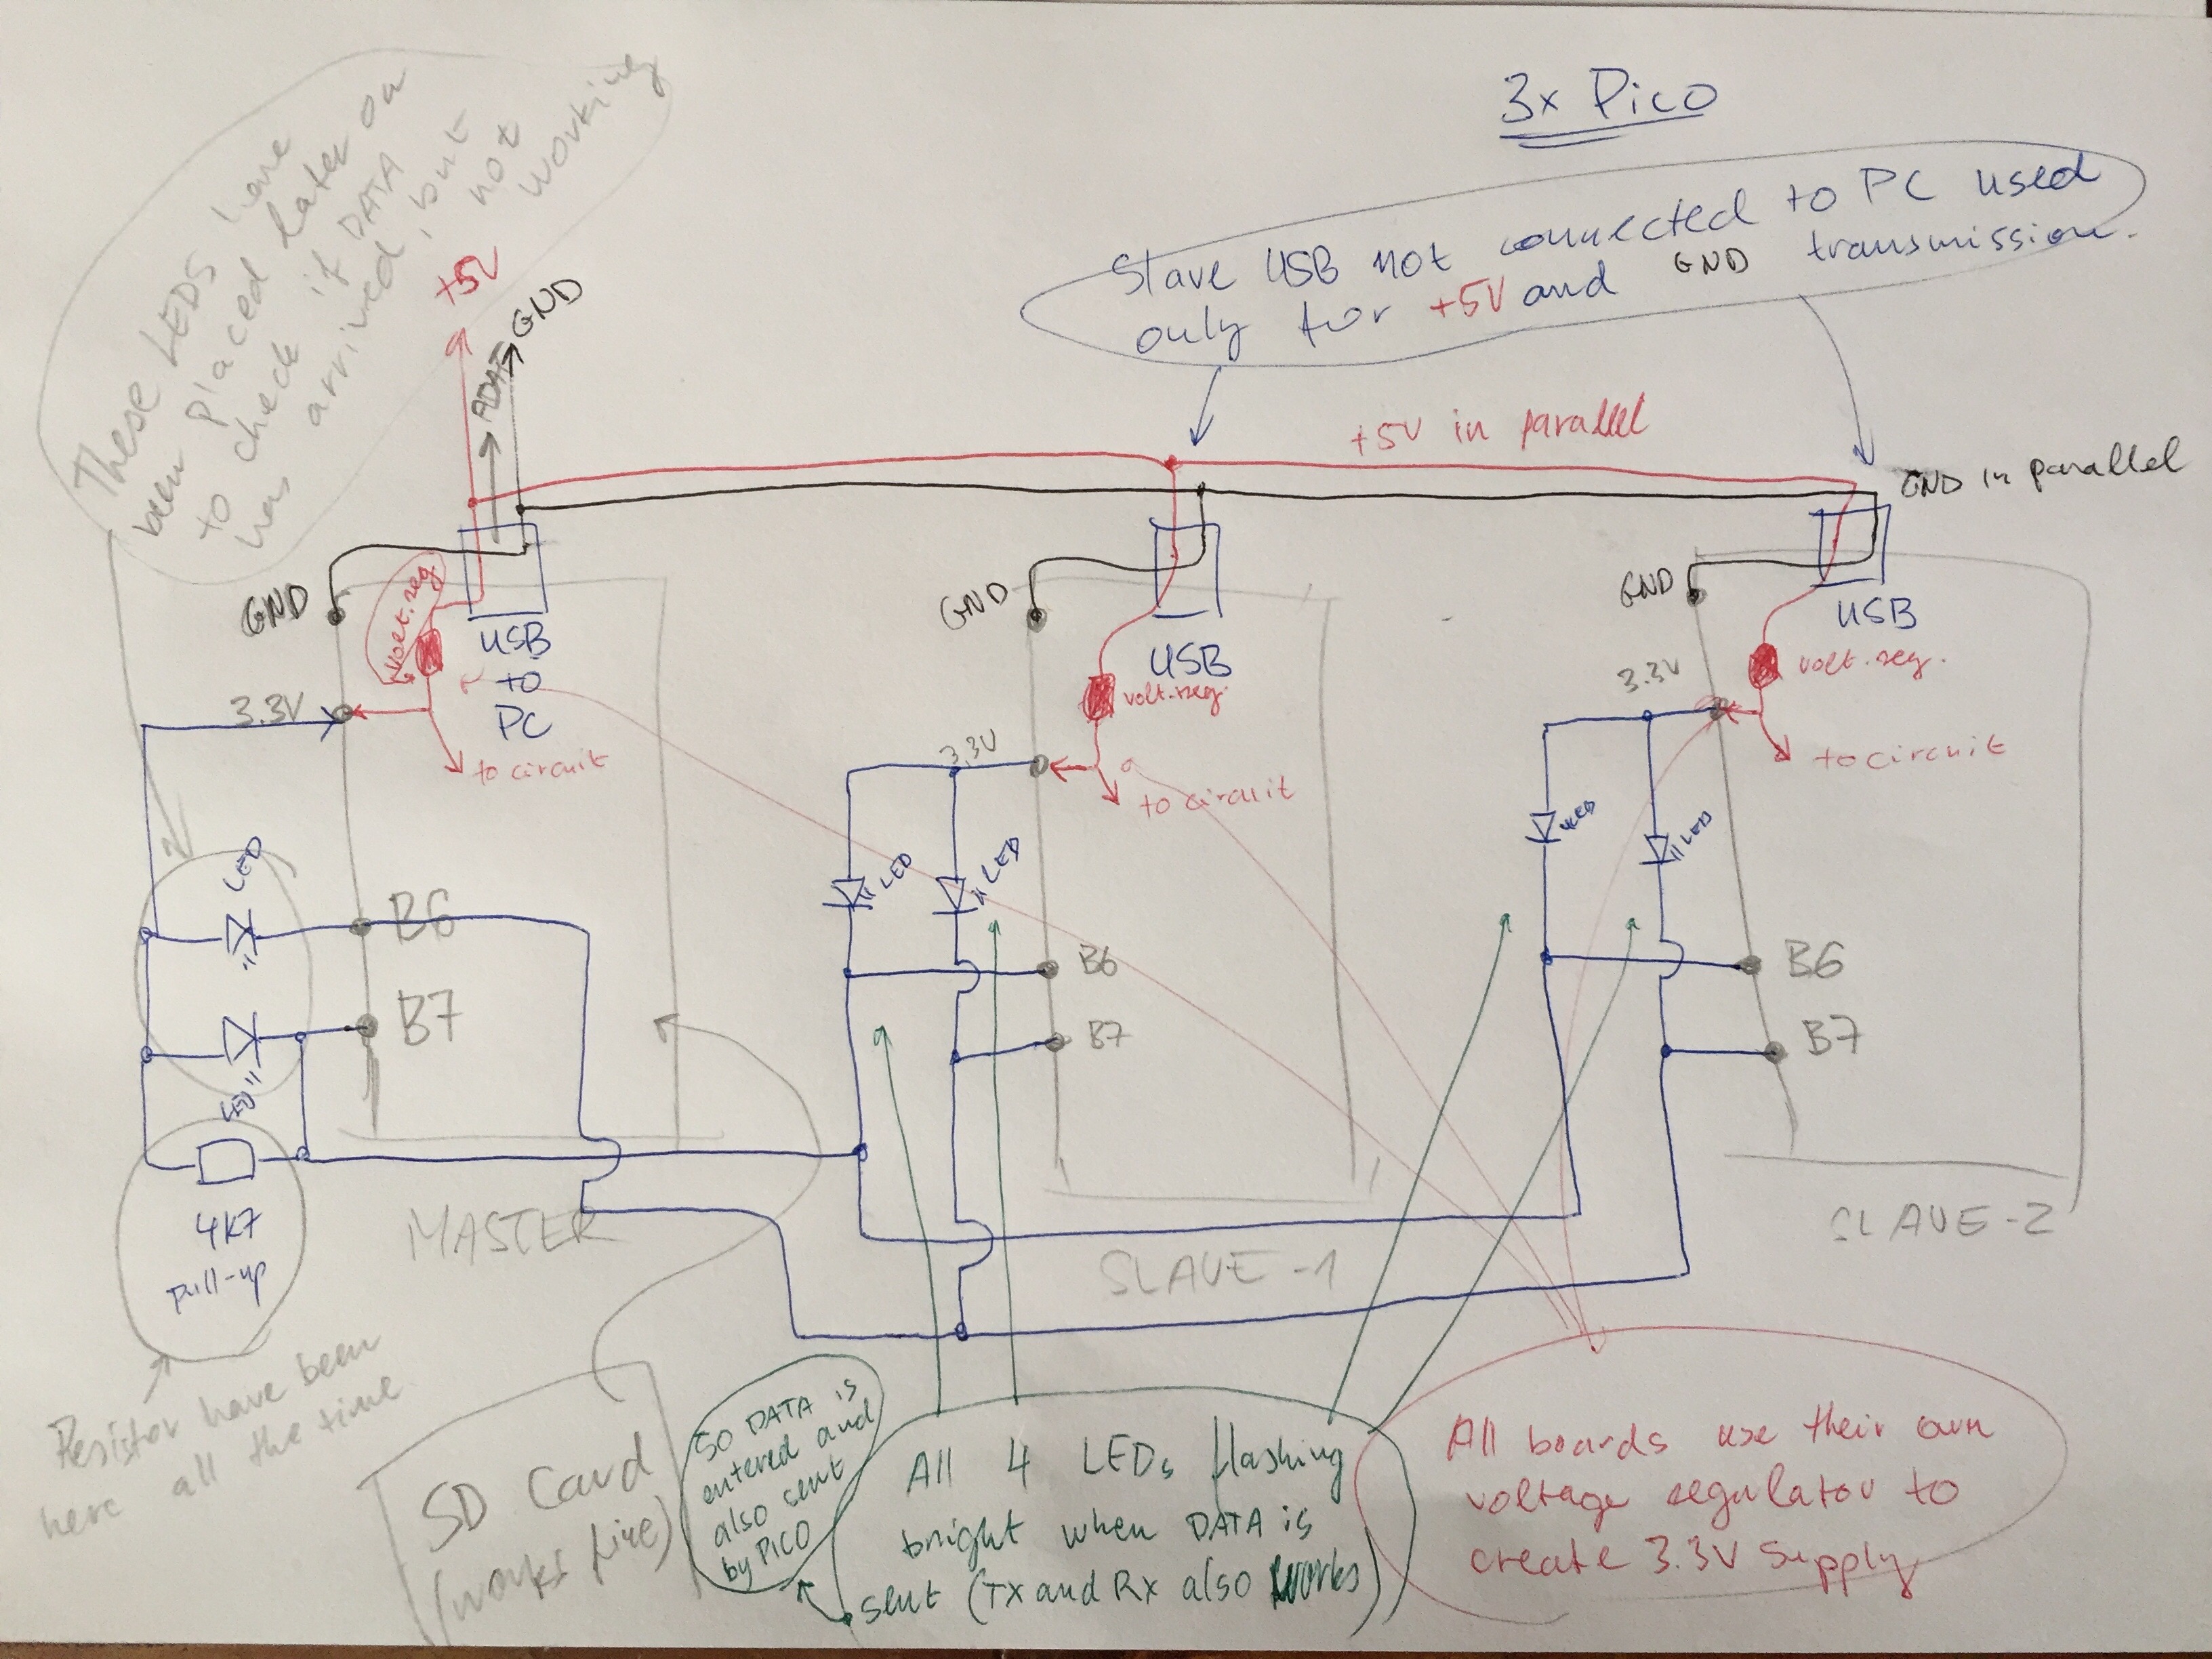 3x Pico
These LEDs have
been placed later on
to check if DATA
has arrived, but
not
working
+5V
DATA
GND
Slave USB not connected to PC used
only for +5V and GND transmission.
+5V in parallel
GND in parallel
GND
volt.reg
USB
to
PC
3.3V
to circuit
LED
B6
B7
LED
4K7
pull-up
Resistor have been
here all the time
MASTER
GND
USB
volt.reg.
3.3V
to circuit
LED
LED
B6
B7
SLAVE-1
GND
USB
volt.reg.
3.3V
to circuit
LED
LED
B6
B7
SLAVE-2
SD Card
(works fine)
SO DATA is
entered and
also sent
by PICO
All 4 LEDs flashing
bright when DATA is
sent (TX and RX also works)
All boards use their own
voltage regulator to
create 3.3V supply